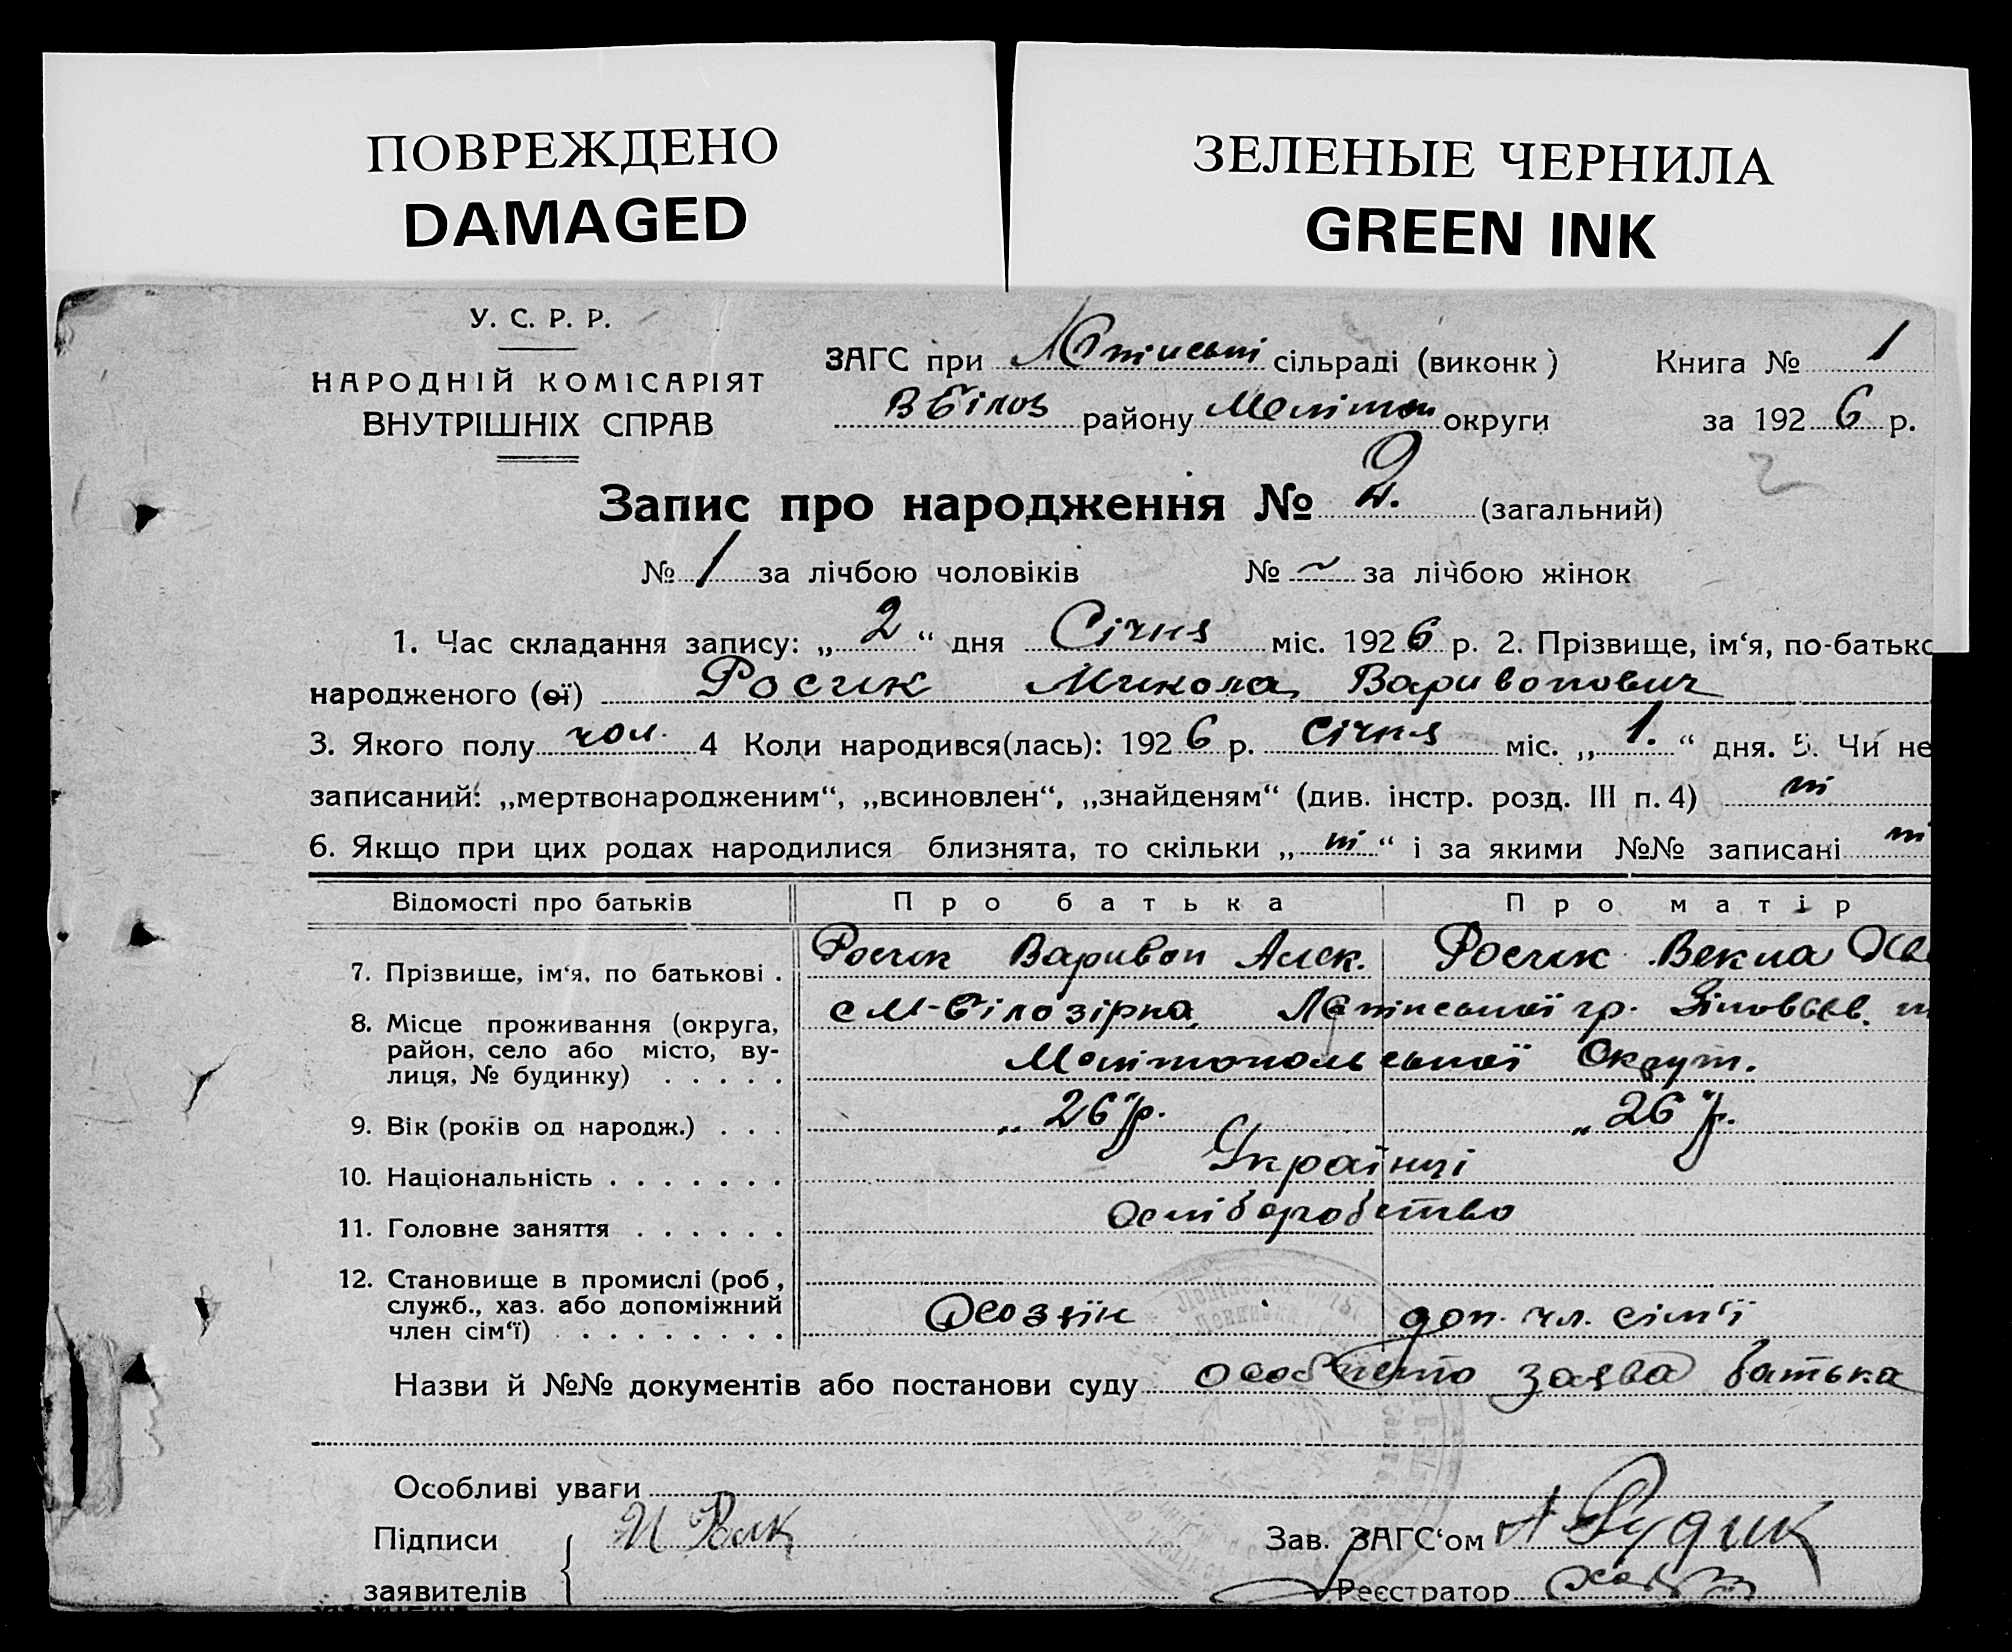 ПОВРЕЖДЕНО
DAMAGED
ЗЕЛЕНЫЕ ЧЕРНИЛА
GREEN INK
У. С. Р. Р.
НАРОДНІЙ КОМІСАРІЯТ
ВНУТРІШНІХ СПРАВ
ЗАГС при сільраді (виконк) Книга № 1
В Білоз району Мелітоп округи за 1926 р.
2
Запис про народження № 2. (загальний)
№ 1 за лічбою чоловіків № ~ за лічбою жінок
1. Час складання запису: „ 2 “ дня Січня міс. 1926 р. 2. Прізвище, ім‘я, по-батько
народженого (ої) Росик Микола Варивонович
3. Якого полу чол. 4 Коли народився(лась): 1926 р. Січня міс. „ 1. “ дня. 5. Чи не
записаний: „мертвонародженим“, „всиновлен“, „знайденям“ (див. інстр. розд. III п. 4) ні
6. Якщо при цих родах народилися близнята, то скільки „ ні “ і за якими №№ записані ні
Відомості про батьків Про батька Про матір
7. Прізвище, ім‘я, по батькові . Росик Варивон Алек. Росик Векла
8. Місце проживання (округа, район, село або місто, вулиця, № будинку) . . . . . с М-Білозірка
Мелітопольської Округи.
9. Вік (років од народж.) . . . „ 26 “ р. „ 26 “ р.
10. Національність . . . . . . . Українці
11. Головне заняття . . . . . .
12. Становище в промислі (роб, служб., хаз. або допоміжний член сім‘ї) . . . . . . . . Хозяїн доп. чл. сім‘ї
Назви й №№ документів або постанови суду заява батька
Особливі уваги
Підписи Зав. ЗАГС‘ом А Рудик
заявителів Реєстратор